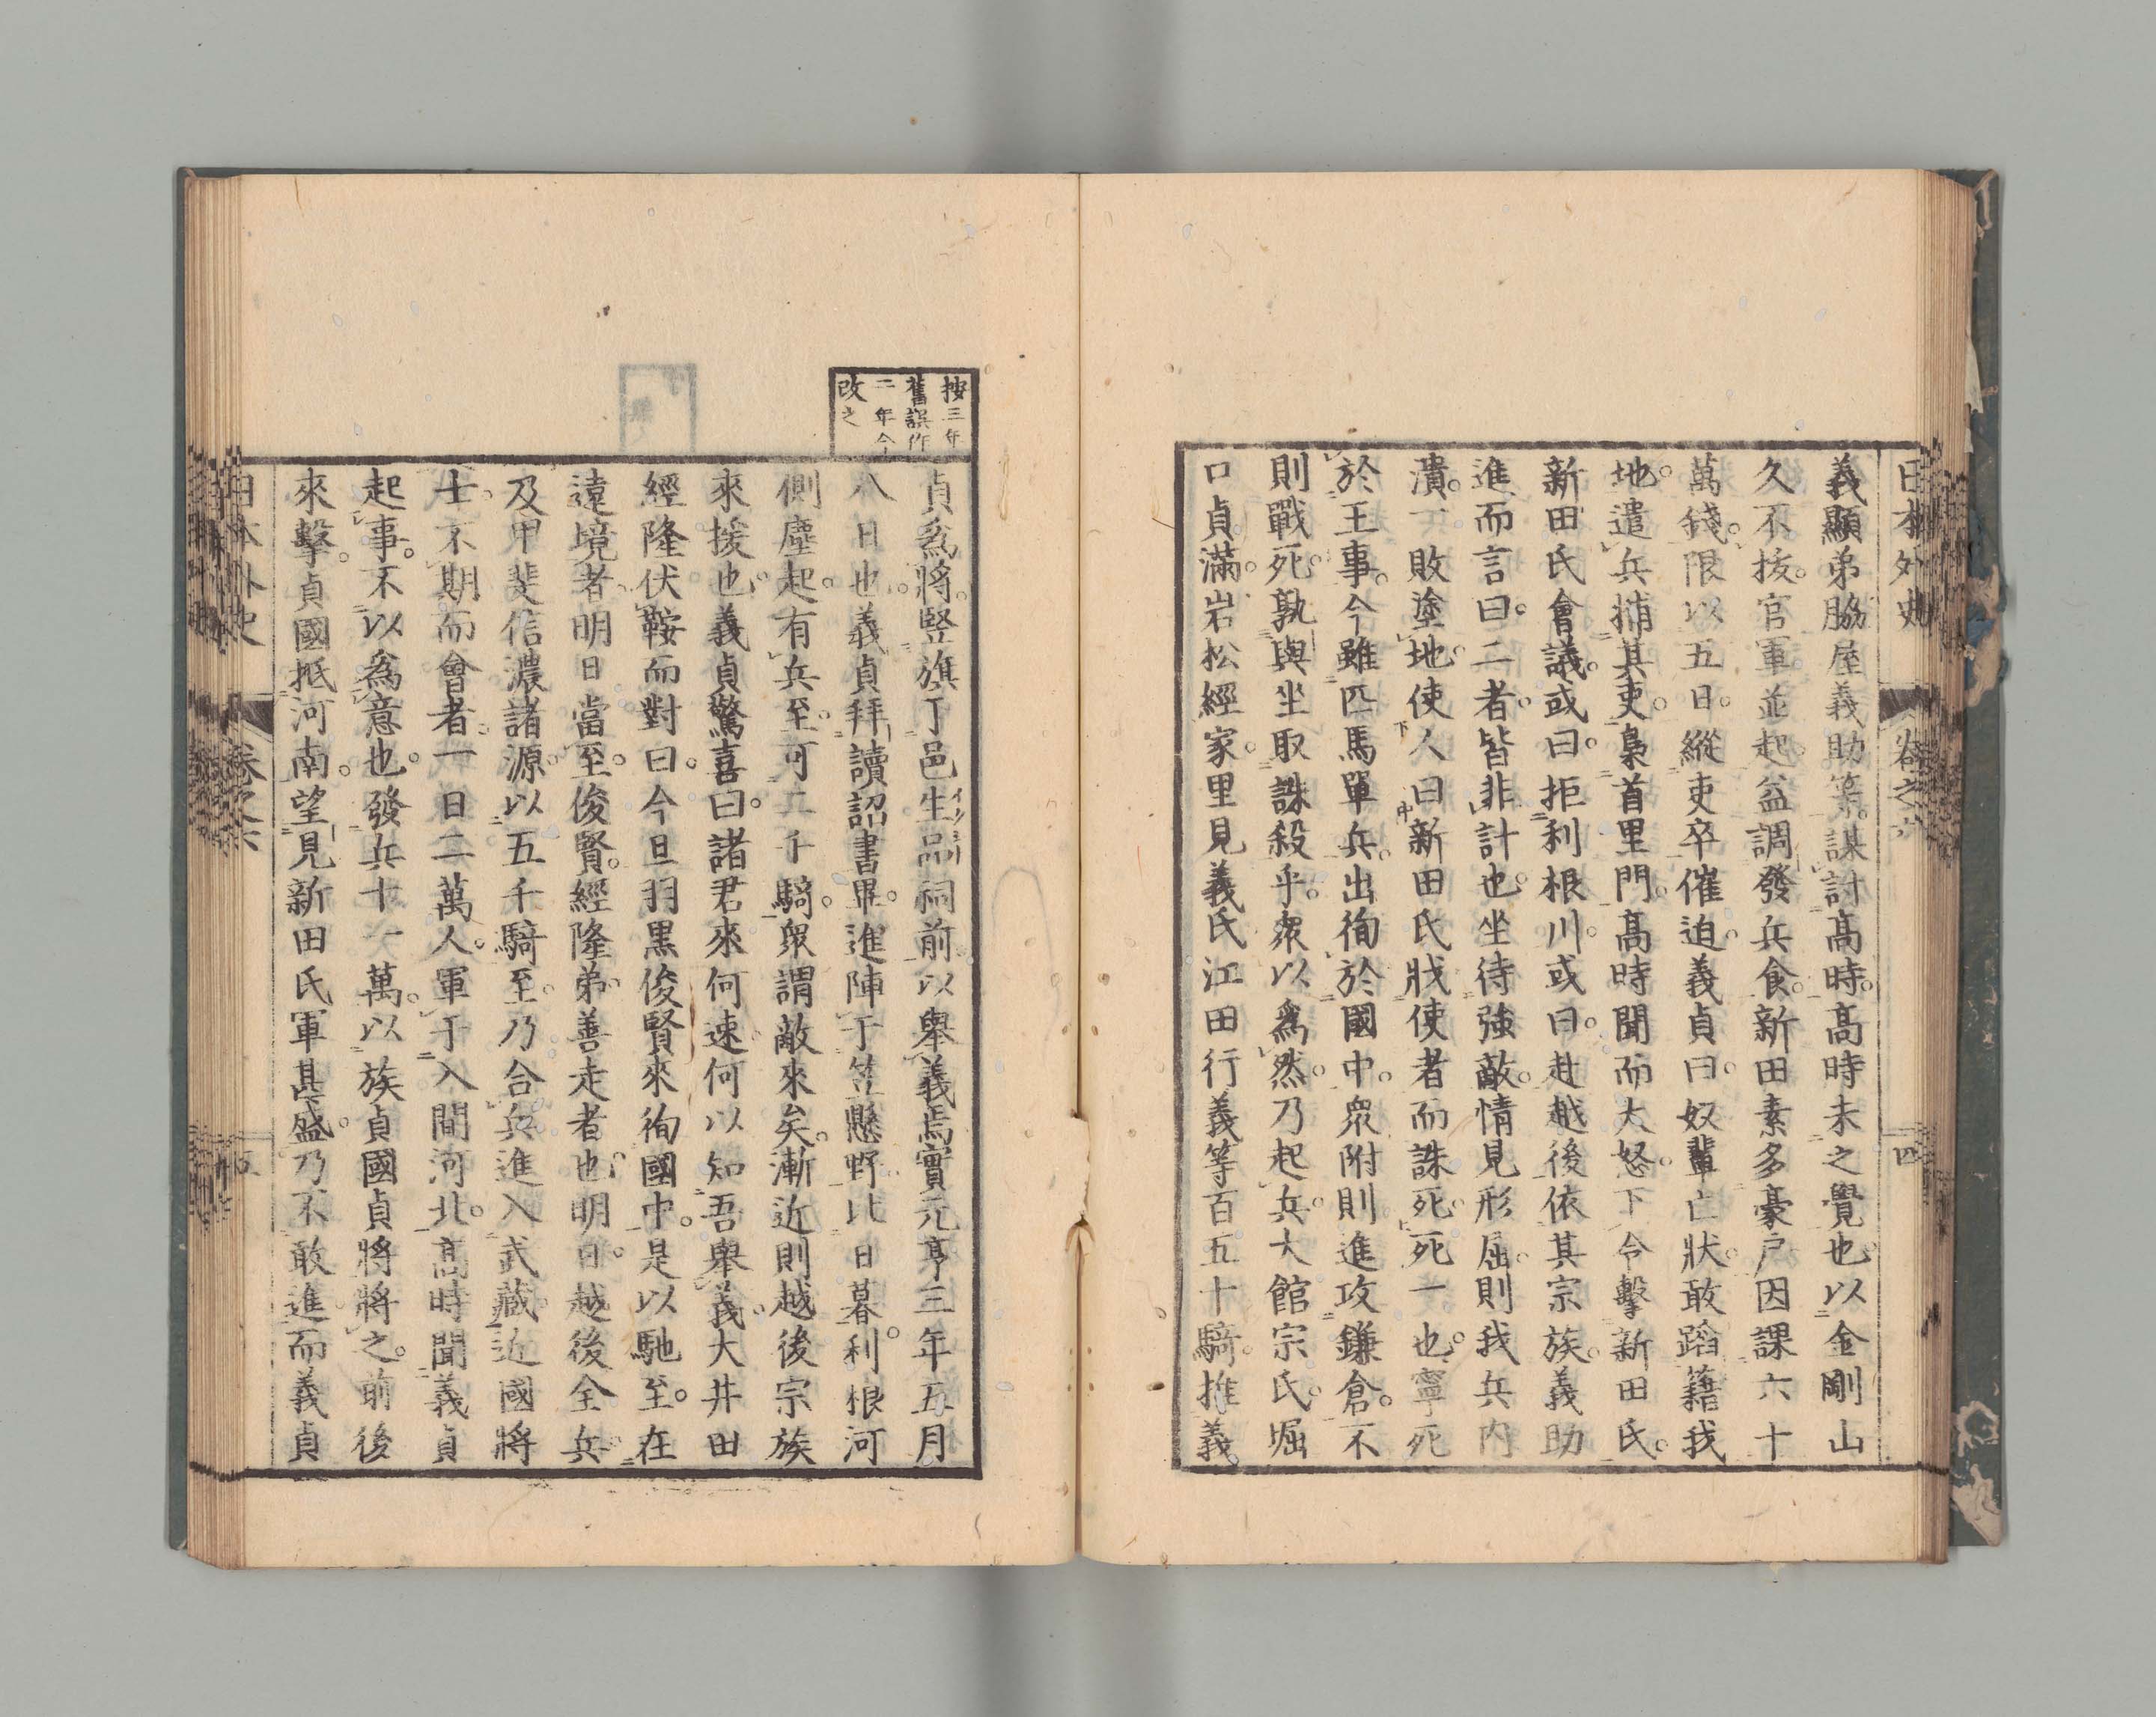 日本外史 卷之六 四
義顯弟脇屋義助等謀討高時高時未之覺也以金剛山
久不拔官軍並起益調發兵食新田素多豪戸因課六十
萬錢限以五日縱吏卒催迫義貞曰奴輩亡狀敢蹈籍我
地遣兵捕其吏梟首里門高時聞而大怒下令擊新田氏
新田氏會議或曰拒利根川或曰赴越後依其宗族義助
進而言曰二者皆非計也坐待強敵情見形屈則我兵内
潰一敗塗地使人曰新田氏戕使者而誅死死一也寧死
於王事今雖匹馬單兵出徇於國中衆附則進攻鎌倉不
則戰死孰與坐取誅殺乎衆以爲然乃起兵大館宗氏堀
口貞滿岩松經家里見義氏江田行義等百五十騎推義
按三年
舊誤作
二年今
改之
貞爲將竪旗于邑生品祠前以舉義焉實元亨三年五月
八日也義貞拜讀詔書畢進陣于笠懸野比日暮利根河
側塵起有兵至可二千騎衆謂敵來矣漸近則越後宗族
來援也義貞驚喜曰諸君來何速何以知吾舉義大井田
經隆伏鞍而對曰今旦羽黒俊賢來徇國中是以馳至在
遠境者明日當至俊賢經隆弟善走者也明日越後全兵
及甲斐信濃諸源以五千騎至乃合兵進入武藏近國將
士不期而會者一日二萬人軍于入間河北高時聞義貞
起事不以爲意也發兵十一萬以族貞國貞將將之前後
來擊貞國抵河南望見新田氏軍甚盛乃不敢進而義貞
日本外史 卷之六 五